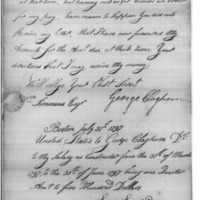 at that time, but having not yet
for my pay, have reason to suppose you did not
receive my last that I have now forwarded my
accounts for the sal due at that time. Your
directions that I may receive my money
Will oblige Your Obdt Servt
George Claghorn
Wm Simmons Esqr
Boston July 20th 1797
United States to George Claghorn Dr
To my Salary as Constructor from the 31st of March
1797 to the 31st of June 1797 being one Quarter
Amt to five Hundred Dollars